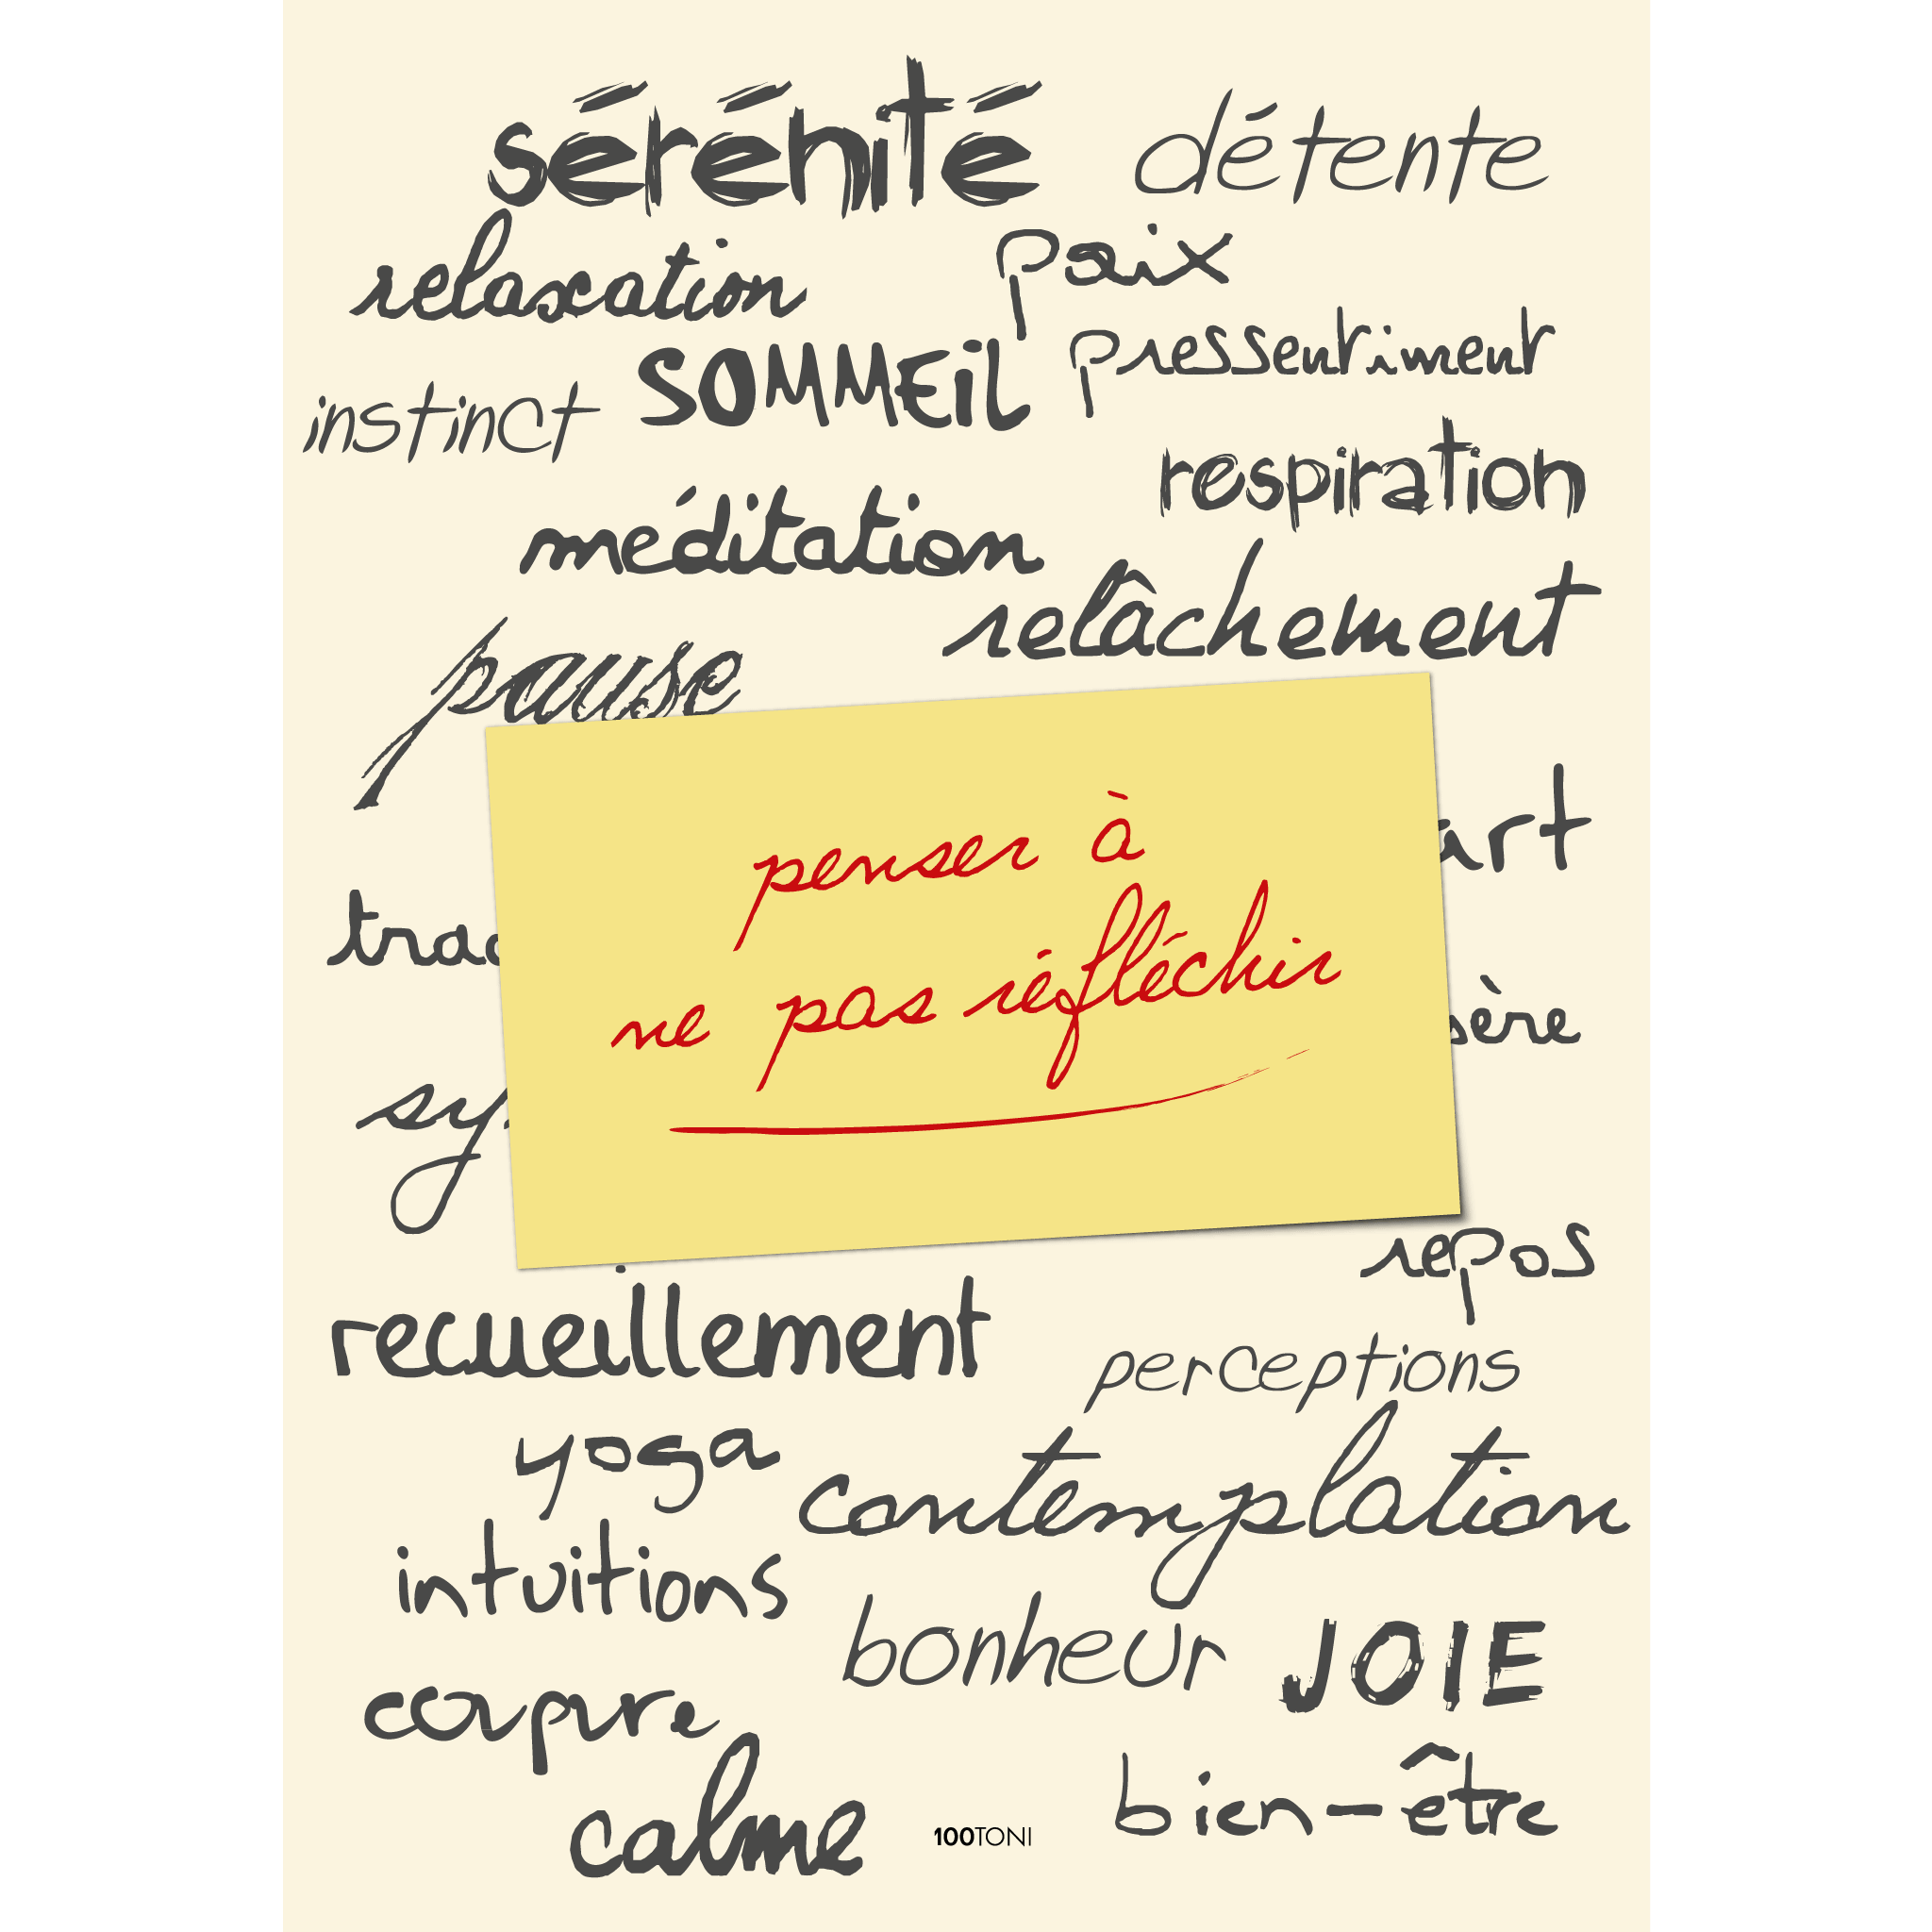 sérénité détente
relaxation paix
SOMMEiL pressentiment
instinct respiration
méditation
relâchement
pause
penser à
ne pas réfléchir
repos
recueillement
perceptions
yoga contemplation
intuitions
bonheur JOIE
coupure
calme bien-être
100TONI